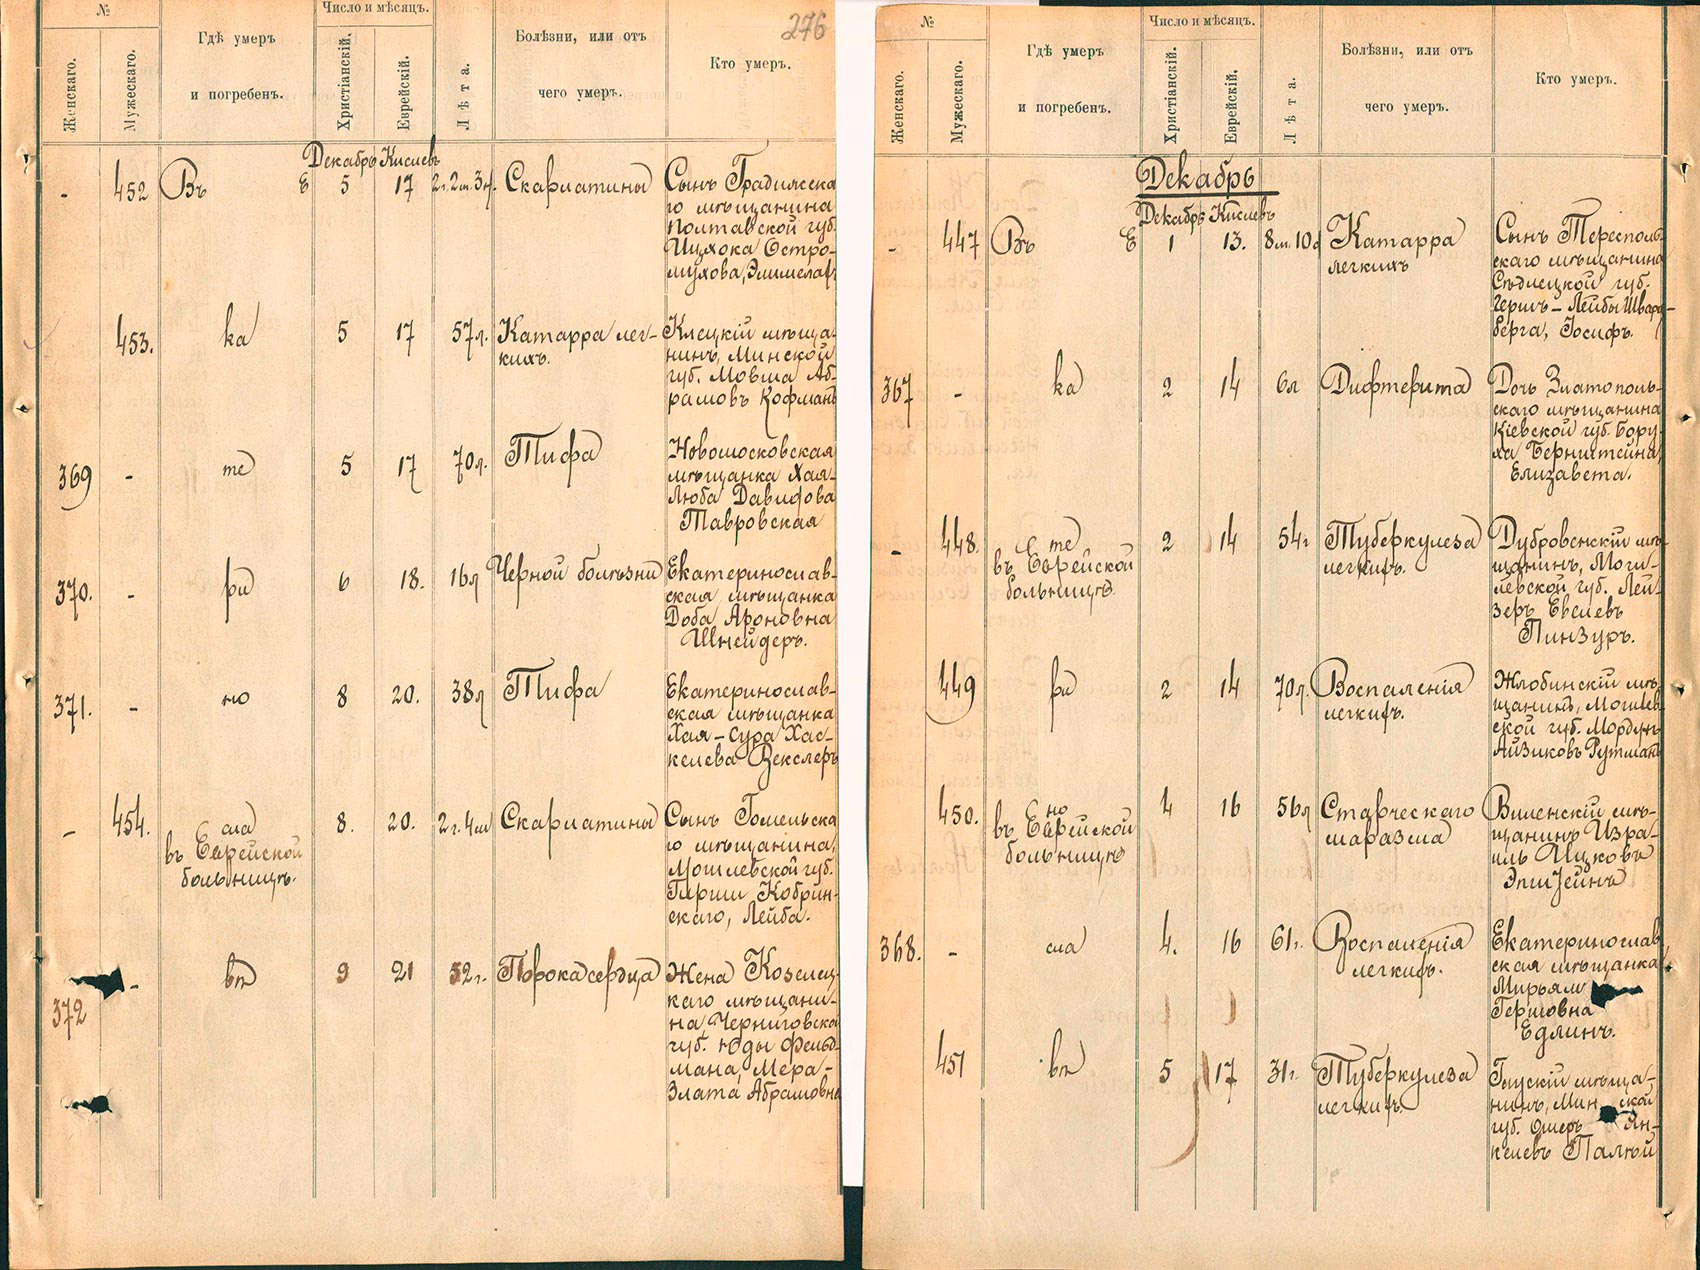 №
Число и мѣсяцъ.
276
Женскаго.
Мужескаго.
Гдѣ умеръ
и погребенъ.
Христіанскій.
Еврейскій.
Лѣта.
Болѣзни, или отъ
чего умеръ.
Кто умеръ.
Декабрь Кислевъ
- 452 Въ Е 5 17 2г. 2м. 3н. Скарлатины Сынъ Градижска
го мѣщанина
Полтавской губ.
Ицхока Остро-
мухова, Элимелахъ
453. ка 5 17 57л. Катарра лег-
кихъ.
Клецкій мѣща-
нинъ, Минской
губ. Мовша Аб-
рамовъ Кофманъ
369 - те 5 17 70л. Тифа Новомосковская
мѣщанка Хая-
Люба Давидова
Тавровская
370. - ри 6 18. 16л Черной болѣзни Екатеринослав-
ская мѣщанка
Доба Ароновна
Шнейдеръ.
371. - но 8 20. 38л Тифа Екатеринослав-
ская мѣщанка
Хая-Сура Хас-
келева Векслеръ
- 454. сла 8. 20. 2г. 4м Скарлатины Сынъ Гомельска
въ Еврейской
больницѣ.
го мѣщанина,
Могилевской губ.
Гирши Кобрин-
скаго, Лейба.
372 - вѣ 9 21 52г. Порока сердца Жена Козелец-
каго мѣщани-
на, Черниговской
губ. Юды Фельд-
мана, Мера-
Злата Абрамовна
№
Число и мѣсяцъ.
Женскаго.
Мужескаго.
Гдѣ умеръ
и погребенъ.
Христіанскій.
Еврейскій.
Лѣта.
Болѣзни, или отъ
чего умеръ.
Кто умеръ.
Декабрь
Декабрь Кислевъ
- 447 Въ Е 1 13. 8м. 10д Катарра
легкихъ
Сынъ Тересполь-
скаго мѣщанина
Сѣдлецкой губ.
Герилъ-Лейбы Шварц-
берга, Іосифъ.
367 - ка 2 14 6л Дифтерита Дочь Златополь-
скаго мѣщанина
Кіевской губ. Бору-
ха Бернштейна,
Елизавета.
- 448. те 2 14 54г Туберкулеза
въ Еврейской
больницѣ.
легкихъ.
Дубровенскій мѣ-
щанинъ, Моги-
левской губ. Лей-
зеръ Евелевъ
Пинзуръ.
449 ри 2 14 70л. Воспаленія
легкихъ.
Жлобинскій мѣ-
щанинъ, Могилев-
ской губ. Мордухъ
Айзиковъ Рутманъ
450. но 4 16 56л Старческаго
въ Еврейской
больницѣ
маразма
Виленскій мѣ-
щанинъ Изра-
иль Ицковъ
Эпштейнъ
368. - сла 4. 16 61г. Воспаленія
легкихъ.
Екатеринослав-
ская мѣщанка
Мирьям
Гершовна
Едлинъ.
451 вѣ 5 17 31г. Туберкулеза
легкихъ.
Глускій мѣща-
нинъ, Мин ской
губ. Ошеръ Ян-
келевъ Палѣй